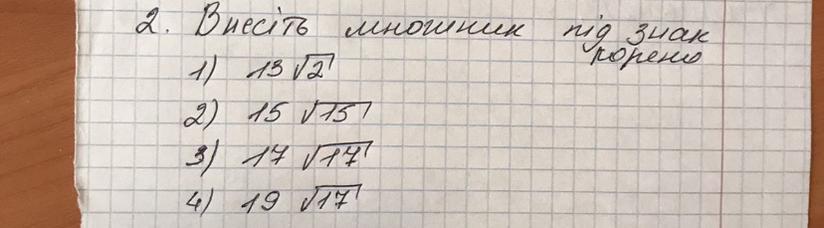 2. Внесіть множник під знак
кореню
1) 13 √2
2) 15 √15
3) 17 √17
4) 19 √17